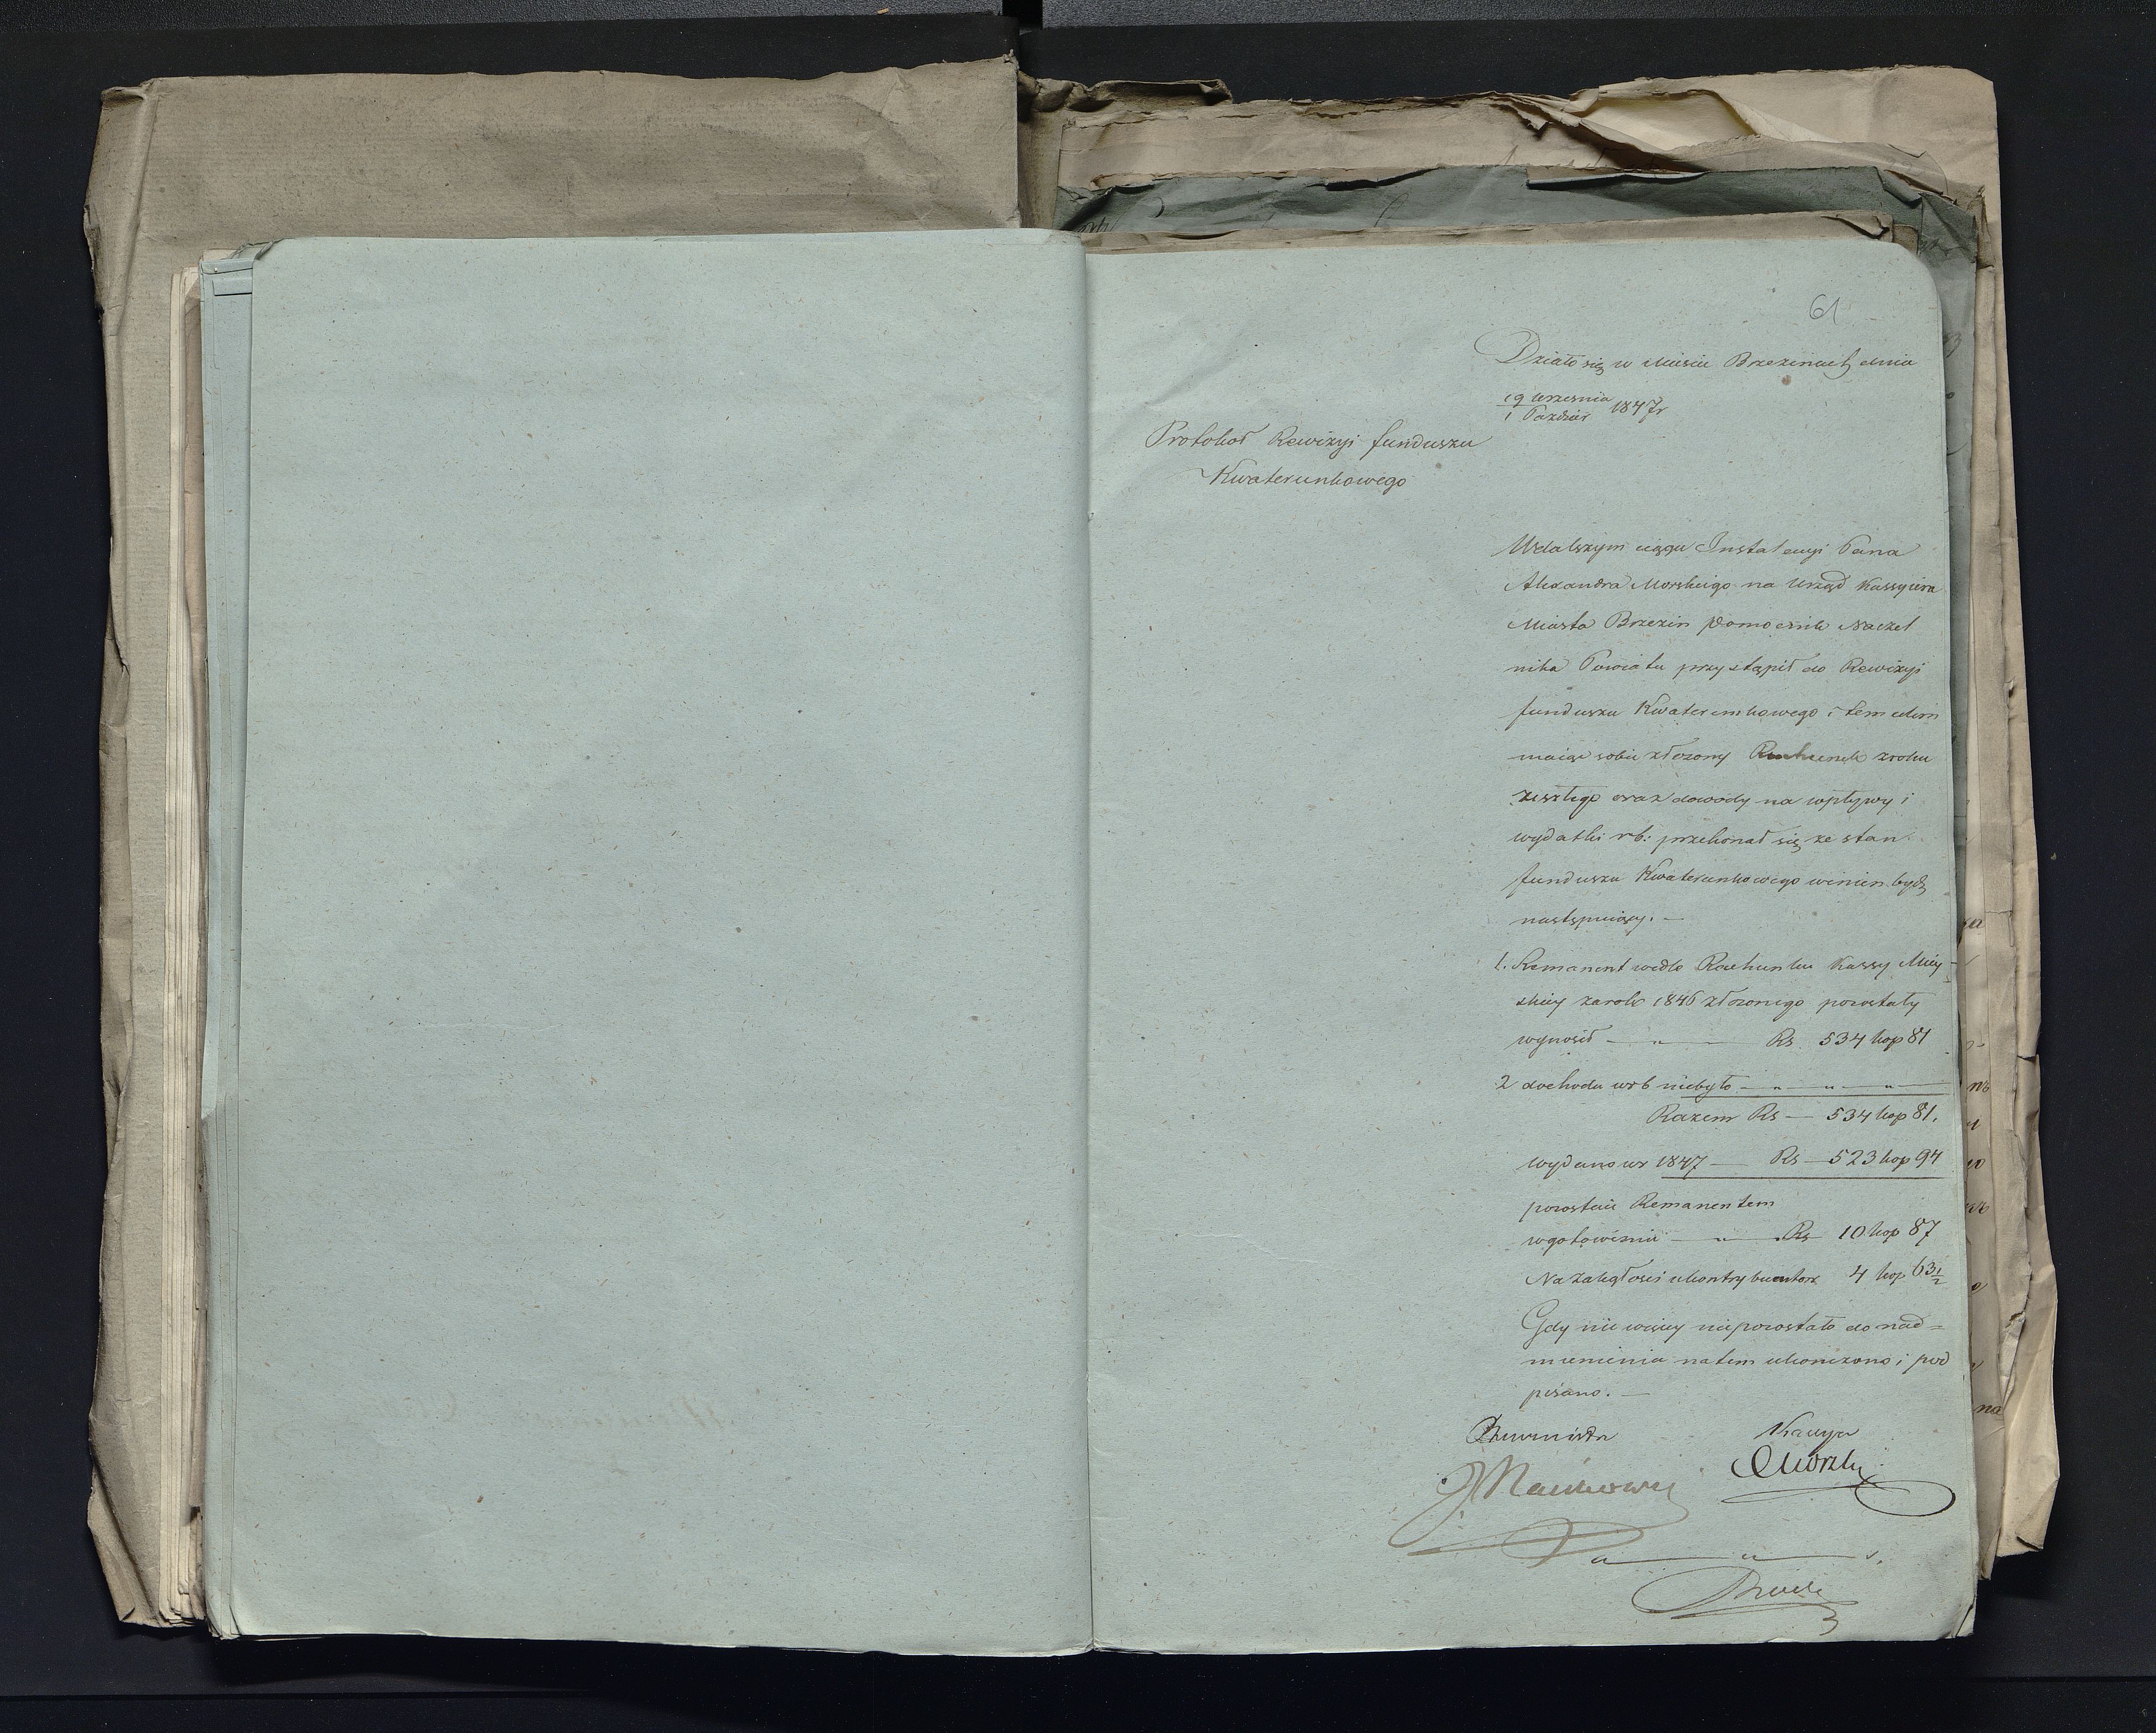 61
Działo się w Mieście Brzezinach dnia
19 Września / 1 Paździer 1847r
Protokoł Rewizyi funduszu
Kwaterunkowego
Wdalszym ciągu Instalacyi Pana
Alexandra Morskiego na Urząd Kassyiera
Miasta Brzezin Pomocnik Naczel
nika Powiatu przystąpił do Rewizyi
funduszu Kwaterunkowego i tem celem
maiąc sobie złożony Rachunek zroku
zeszłego oraz dowody na wpływy i
wydatki rb: przekonał się że stan
funduszu Kwaterunkowego winien bydź
następuiący. —
1. Remanent wedle Rachunku Kassy Miey-
skiey zarok 1846 złożonego pozostały
wynosił — " — Rs 534 kop 81
2 dochodu wrb niebyło — " — " — " —
Razem Rs — 534 kop 81.
wydano wr 1847 — Rs — 523 kop 94
pozostaie Remanentem
wgotowiźnie — " — Rs 10 kop 87
Na zaległości ukontrybuentów 4 kop 63 1/2
Gdy nic więcey niepozostało do nad=
mienienia natem ukończono i pod
pisano. —
Burmistrz Kassyer
Morski
" — " — .